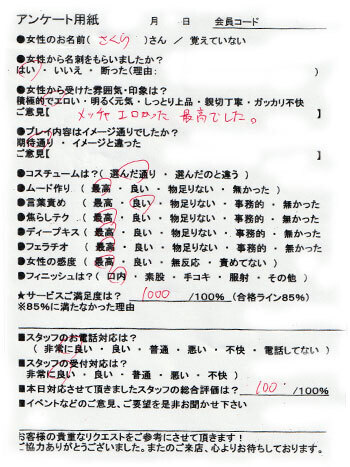 アンケート用紙　　月　　日　　会員コード
●女性のお名前（さくら）さん ／ 覚えていない
●女性から名刺をもらいましたか？
はい ・ いいえ ・ 断った(理由: )
●女性から受けた雰囲気・印象は？
積極的でエロい・明るく元気・しっとり上品・親切丁寧・ガッカリ不快
ご意見【 メッチャ エロかった 最高でした。 】
●プレイ内容はイメージ通りでしたか？
期待通り ・ イメージと違った
ご意見【 】
●コスチュームは？( 選んだ通り ・ 選んだのと違う )
●ムード作り ( 最高 ・ 良い ・ 物足りない ・ 無かった )
●言葉責め ( 最高 ・ 良い ・ 物足りない ・ 事務的 ・ 無かった )
●焦らしテク ( 最高 ・ 良い ・ 物足りない ・ 事務的 ・ 無かった )
●ディープキス ( 最高 ・ 良い ・ 物足りない ・ 事務的 ・ 無かった )
●フェラチオ ( 最高 ・ 良い ・ 物足りない ・ 事務的 ・ 無かった )
●女性の感度 ( 最高 ・ 良い ・ 無反応 ・ 責めてない )
●フィニッシュは？ ( 口内 ・ 素股 ・ 手コキ ・ 服射 ・ その他 )
★サービスご満足度は？ 1000 /100% (合格ライン85%)
※85%に満たなかった理由
■スタッフのお電話対応は？
( 非常に良い ・ 良い ・ 普通 ・ 悪い ・ 不快 ・ 電話してない )
■スタッフの受付対応は？
非常に良い ・ 良い ・ 普通 ・ 悪い ・ 不快 )
■本日対応させて頂きましたスタッフの総合評価は？ 100 /100%
■イベントなどのご意見、ご要望を是非お聞かせ下さい
お客様の貴重なリクエストをご参考にさせて頂きます！
ご協力ありがとうございました。またのご来店、心よりお待ちしております。